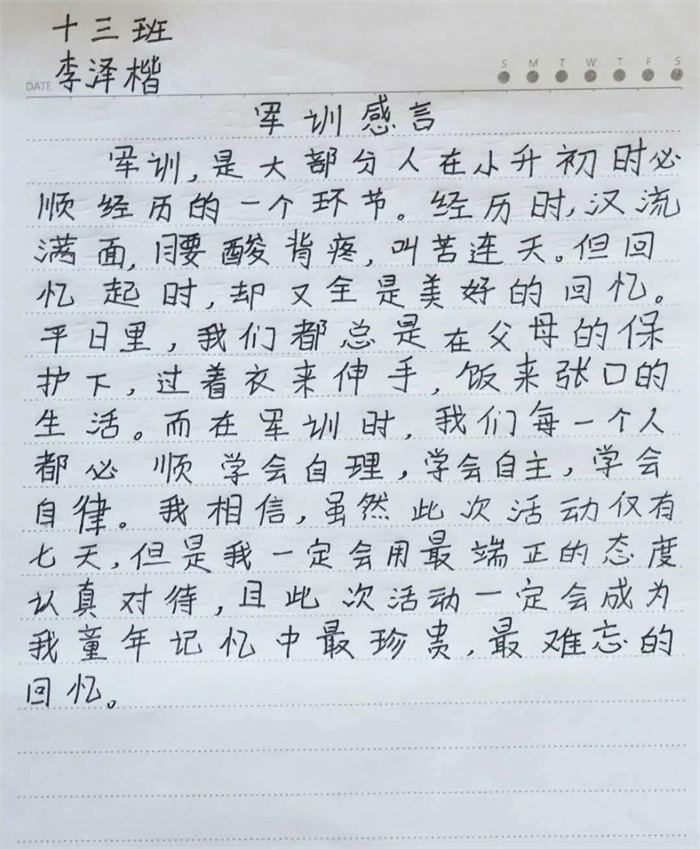 十三班
李泽楷
DATE
S M T W T F S
军训感言
军训,是大部分人在小升初时必
顺经历的一个环节。经历时,汉流
满面,腰酸背疼,叫苦连天。但回
忆起时,却又全是美好的回忆。
平日里,我们都总是在父母的保
护下,过着衣来伸手,饭来张口的
生活。而在军训时,我们每一个人
都必顺学会自理,学会自主,学会
自律。我相信,虽然此次活动仅有
七天,但是我一定会用最端正的态度
认真对待,且此次活动一定会成为
我童年记忆中最珍贵,最难忘的
回忆。